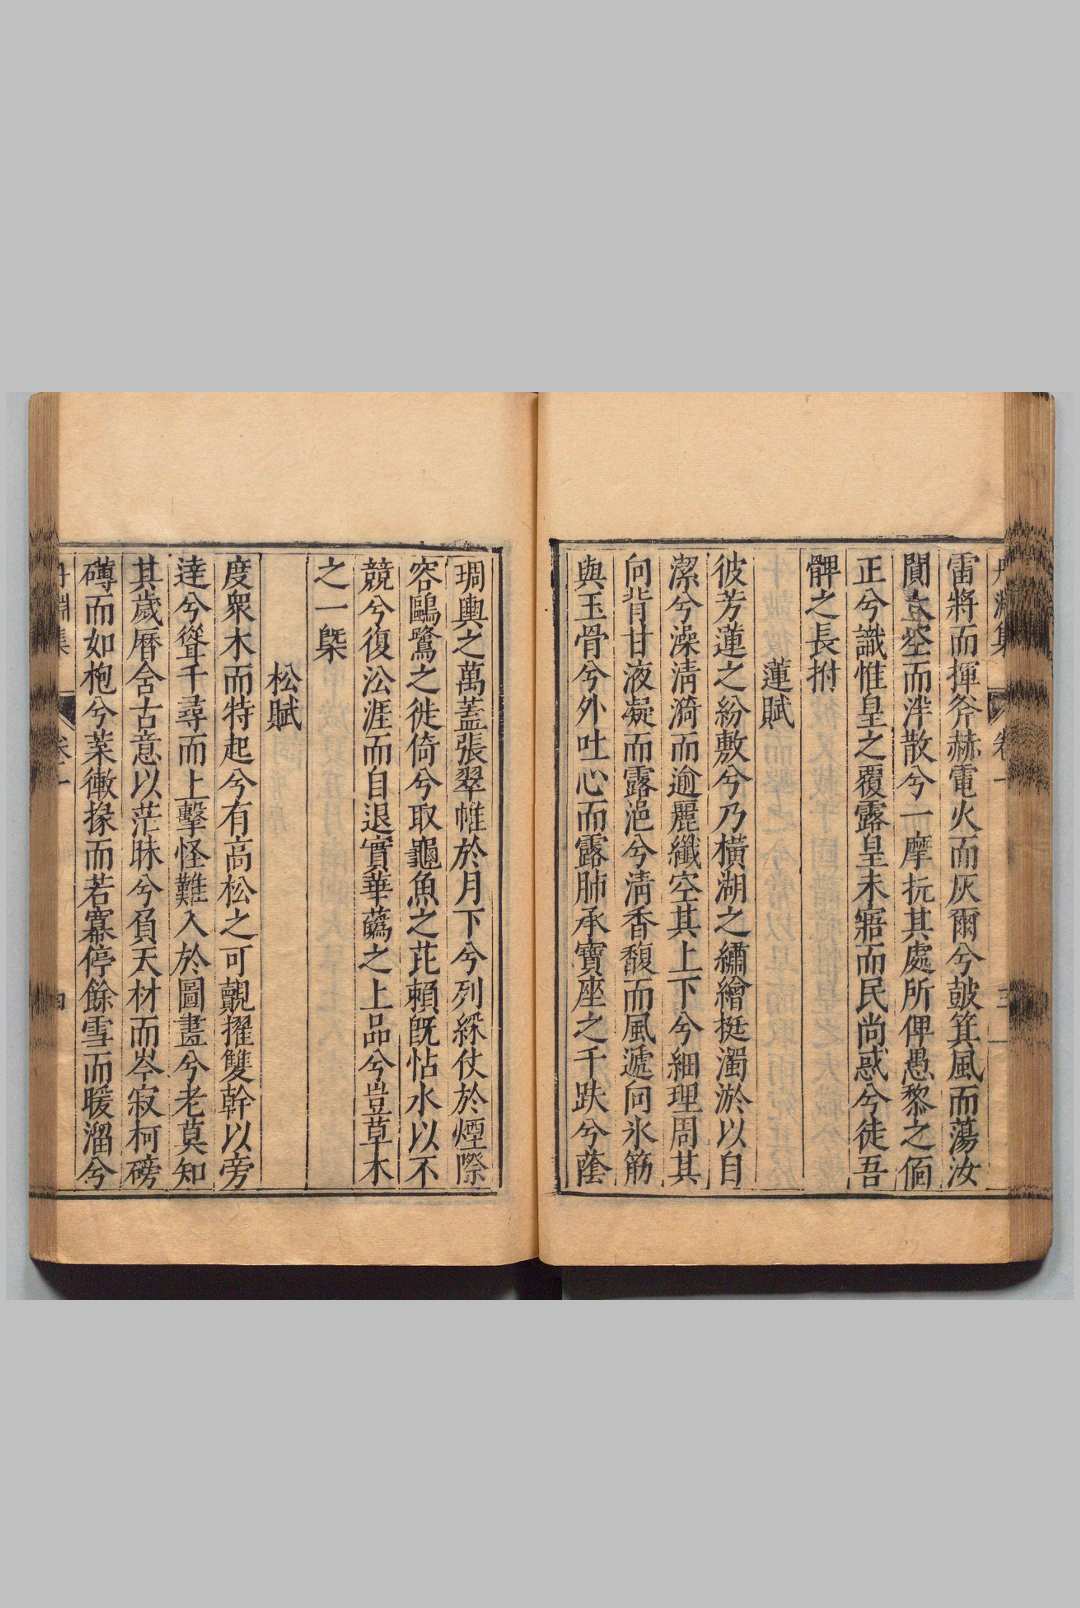 雷將而揮斧赫電火而灰爾兮皷箕風而蕩汝
閴太空而泮散兮一摩抗其處所俾愚黎之偭
正兮識惟皇之覆露皇未寤而民尚惑兮徒吾
髀之長拊
蓮賦
彼芳蓮之紛敷兮乃橫湖之繡繪挺濁淤以自
潔兮澡清漪而逾麗纖空其上下兮細理周其
向背甘液凝而露浥兮清香馥而風遞向氷筋
與玉骨兮外吐心而露肺承寶座之千趺兮蔭
琱輿之萬蓋張翠帷於月下兮列綵仗於煙際
容鷗鷺之徙倚兮取龜魚之芘賴旣怗水以不
競兮復㳂涯而自退實華蘤之上品兮豈草木
之一槩
松賦
度衆木而特起兮有高松之可覿擢雙幹以旁
達兮聳千尋而上擊怪難入於圖畫兮老莫知
其歲曆含古意以茫昧兮負天材而岑寂柯磅
礴而如枹兮葉橵㨽而若寡停餘雪而暖溜兮
丹淵集 卷一 三
丹淵集 卷一 四